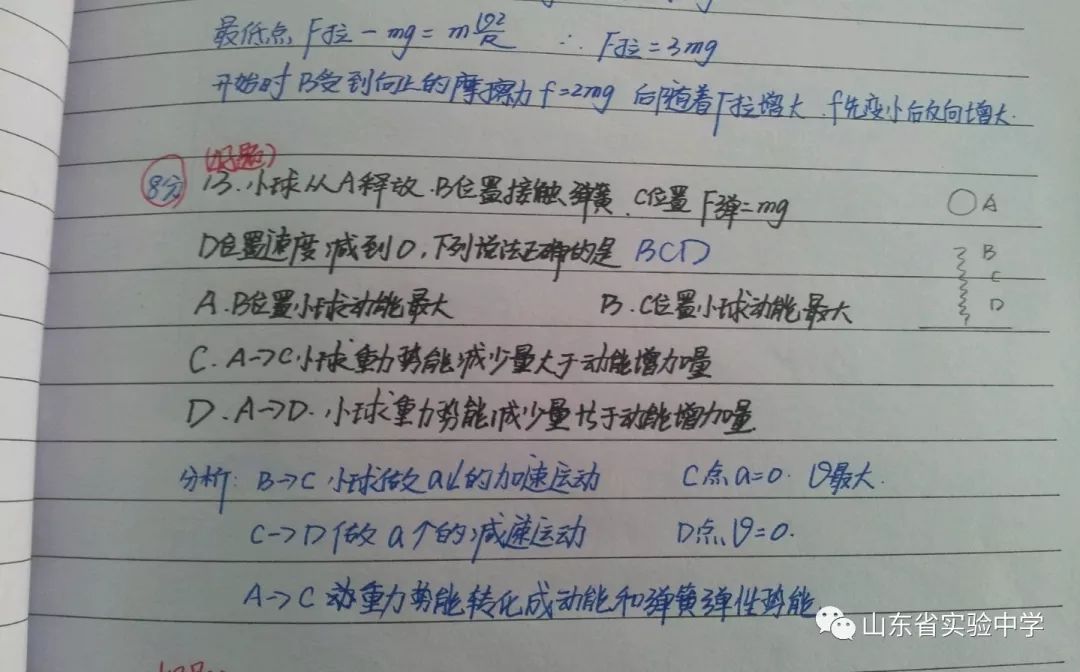 最低点 F拉-mg=mv²/R ∴ F拉=3mg
开始时B受到向上的摩擦力f=2mg 后随着F拉增大.f先变小后反向增大.
(好题)
8分 13.小球从A释放.B位置接触弹簧.C位置F弹=mg
D位置速度减到0,下列说法正确的是 BCD
A.B位置小球动能最大 B.C位置小球动能最大
C.A→C小球重力势能减少量大于动能增加量
D.A→D.小球重力势能减少量大于动能增加量
A
B
C
D
分析: B→C 小球做a↓的加速运动 C点a=0. v最大.
C→D做a↑的减速运动 D点v=0.
A→C 重力势能转化成动能和弹簧弹性势能
山东省实验中学